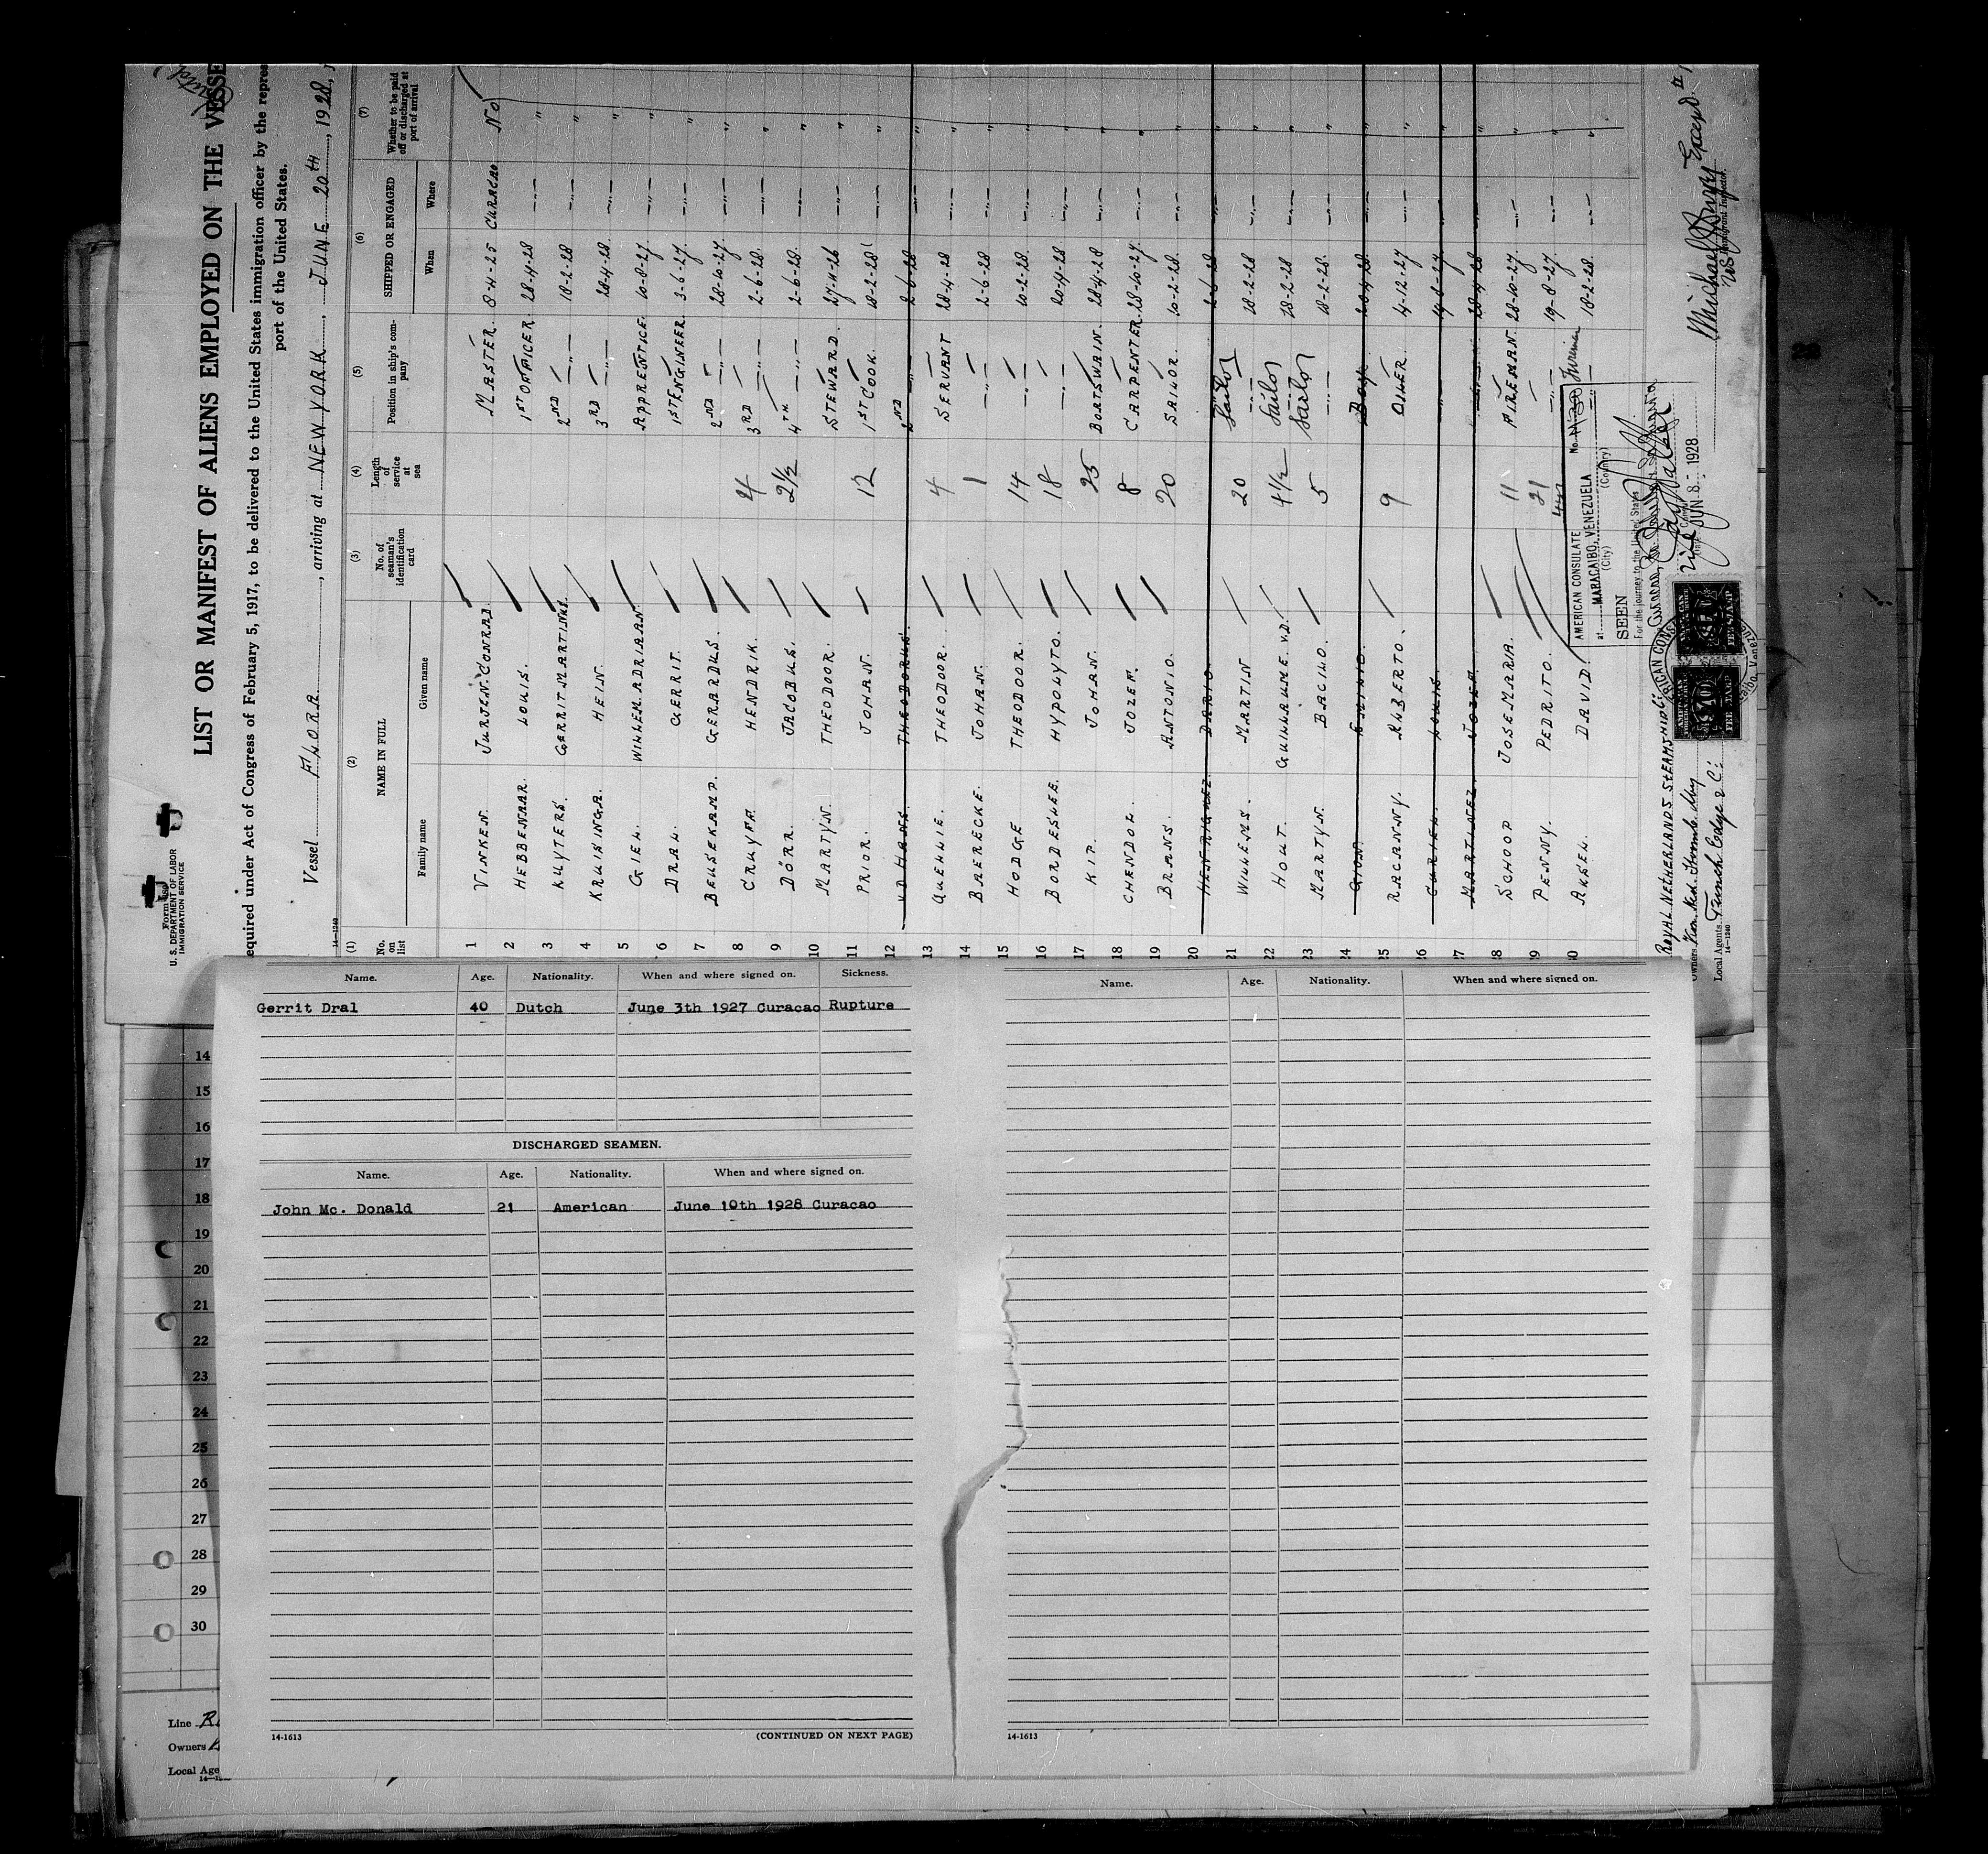 Form 680
U. S. DEPARTMENT OF LABOR
IMMIGRATION SERVICE
LIST OR MANIFEST OF ALIENS EMPLOYED ON THE VESSE
equired under Act of Congress of February 5, 1917, to be delivered to the United States immigration officer by the repres
port of the United States.
Vessel FLORA, arriving at NEW YORK, JUNE 20th, 1928,
14-1240
(1) (2) (3) (4) (5) (6) (7)
No. on list
NAME IN FULL
Family name Given name
No. of seaman's identification card
Length of service at sea
Position in ship's company
SHIPPED OR ENGAGED
When Where
Whether to be paid off or discharged at port of arrival
1 VINKEN. JURJEN. CONRAD. MASTER. 8-4-25 CURACAO NO
2 HEBBENAAR. LOUIS. 1ST OFFICER. 28-4-28 -"- "
3 KUYTERS. GERRIT MARTINUS. 2ND -"- 18-2-28 -"- "
4 KRUISINGA. HEIN. 3RD -"- 28-4-28. -"- "
5 GIEL. WILLEM. ADRIAAN. APPRENTICE. 10-8-27. -"- "
6 DRAL. GERRIT. 1ST ENGINEER. 3-6-27. -"- "
7 BEUSEKAMP. GERARDUS. 2ND -"- 28-10-27 -"- "
8 CRUYFF. HENDRIK. 4 3RD -"- 2-6-28. -"- "
9 DÖRR. JACOBUS. 2½ 4TH -"- 2-6-28. -"- "
10 MARTYN. THEODOOR. STEWARD. 27-11-26 -"- "
11 PRIOR. JOHAN. 12 1ST COOK. 18-2-28 -"- "
12 v.D HANS. THEODORUS. 2ND -"- 2-6-28 -"- "
13 QUELLIE. THEODOOR. 4 SERVANT 28-4-28 -"- "
14 BAERECKE. JOHAN. 1 -"- 2-6-28. -"- "
15 HODGE THEODOOR. 14 -"- 10-2-28. -"- "
16 BORDESLEE. HYPOLYTO. 18 -"- 20-4-28 -"- "
17 KIP. JOHAN. 25 BOATSWAIN. 28-4-28 -"- "
18 CHENDOL. JOZEF. 8 CARPENTER. 28-10-27. -"- "
19 BRANS. ANTONIO. 20 SAILOR. 10-2-28. -"- "
20 HENRIQUEZ. DARIO. 2-6-28 -"- "
21 WILLEMS. MARTIN 20 Sailor 18-2-28 -"- "
22 HOUT. GUILLAUME. v.D. 4½ Sailor 18-2-28 -"- "
23 MARTYN. BACILO. 5 Sailor 18-2-28. -"- "
24 GION. EMILIO. BOY. 20-4-28. -"- "
25 RACANNY. ALBERTO. 9 OILER. 4-12-27 -"- "
26 CURIEL. LOUIS. -"- -"- "
27 MARTINEZ. JOZEF. -"- 28-4-28 -"- "
28 SCHOOP JOSE MARIA. 11 FIREMAN. 28-10-27. -"- "
29 PENNY. PEDRITO. 21 -"- 19-8-27. -"- "
30 AKEL. DAVID. -"- 18-2-28. -"- "
AMERICAN CONSULATE
at MARACAIBO, VENEZUELA
(City) (Country)
SEEN
For the journey to the United States
JUN 8 - 1928
AMERICAN
FEE STAMP
ROYAL NETHERLANDS STEAMSHIP Co.
Owners
Local Agents Funch Edye & Co.
14-1240
Immigrant Inspector.
Name. Age. Nationality. When and where signed on. Sickness.
Gerrit Dral 40 Dutch June 3th 1927 Curacao Rupture
DISCHARGED SEAMEN.
Name. Age. Nationality. When and where signed on.
John Mc. Donald 21 American June 10th 1928 Curacao
14-1613 (CONTINUED ON NEXT PAGE)
Name. Age. Nationality. When and where signed on.
14-1613
14
15
16
17
18
19
20
21
22
23
24
25
26
27
28
29
30
Line
Owners
Local Age